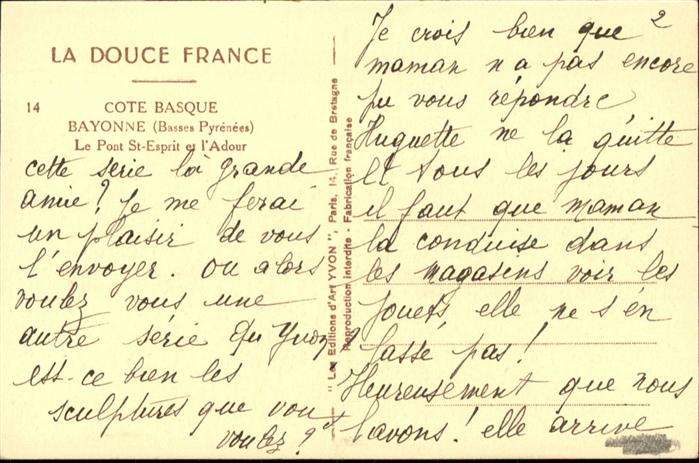 LA DOUCE FRANCE
14
COTE BASQUE
BAYONNE (Basses Pyrénées)
Le Pont St-Esprit et l'Adour
cette série là grande
amie? Je me ferai
un plaisir de vous
l'envoyer. ou alors
voulez vous une
autre série du Yvon?
est-ce bien les
sculptures que vous
voulez?
"Les Editions d'Art YVON", Paris, 14, Rue de Bretagne
Reproduction interdite - Fabrication française
2
Je crois bien que
maman n a pas encore
pu vous répondre
Huguette ne la quitte
et tous les jours
il faut que maman
la conduise dans
les magasens voir les
jouets, elle ne s'én
lasse pas!
Heureusement que nous
l'avons! elle arrive